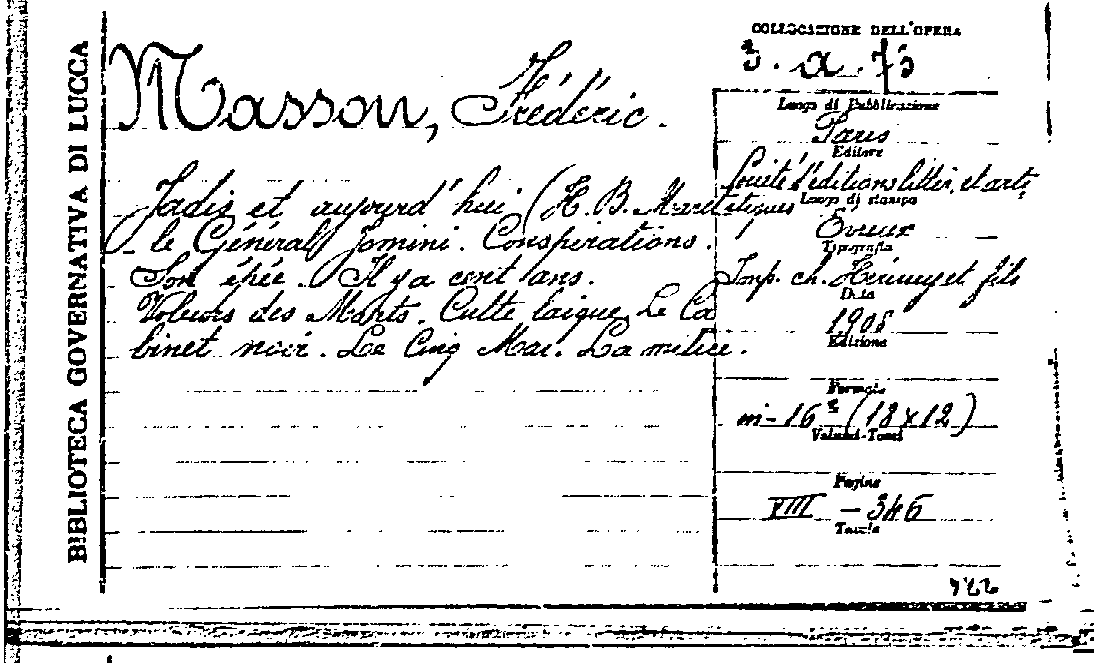 BIBLIOTECA GOVERNATIVA DI LUCCA
Masson, Frédéric.
Jadis et aujourd'hui (H. B. Maret
le Général Jomini. Conspirations.
Son épée. Il y a cent ans.
Voleurs des Morts. Culte laïque, Le Ca
binet noir. Le Cinq Mai. La milice.
COLLOCAZIONE DELL'OPERA
3. a. 73
Luogo di Pubblicazione
Paris
Editore
Société d'éditions littér. et artistiques
Luogo di stampa
Évreux
Tipografia
Imp. ch. Hérissey et fils
Data
1908
Edizione
Formato
in-16º (18x12)
Volumi-Tomi
Pagine
VIII - 346
Tavole